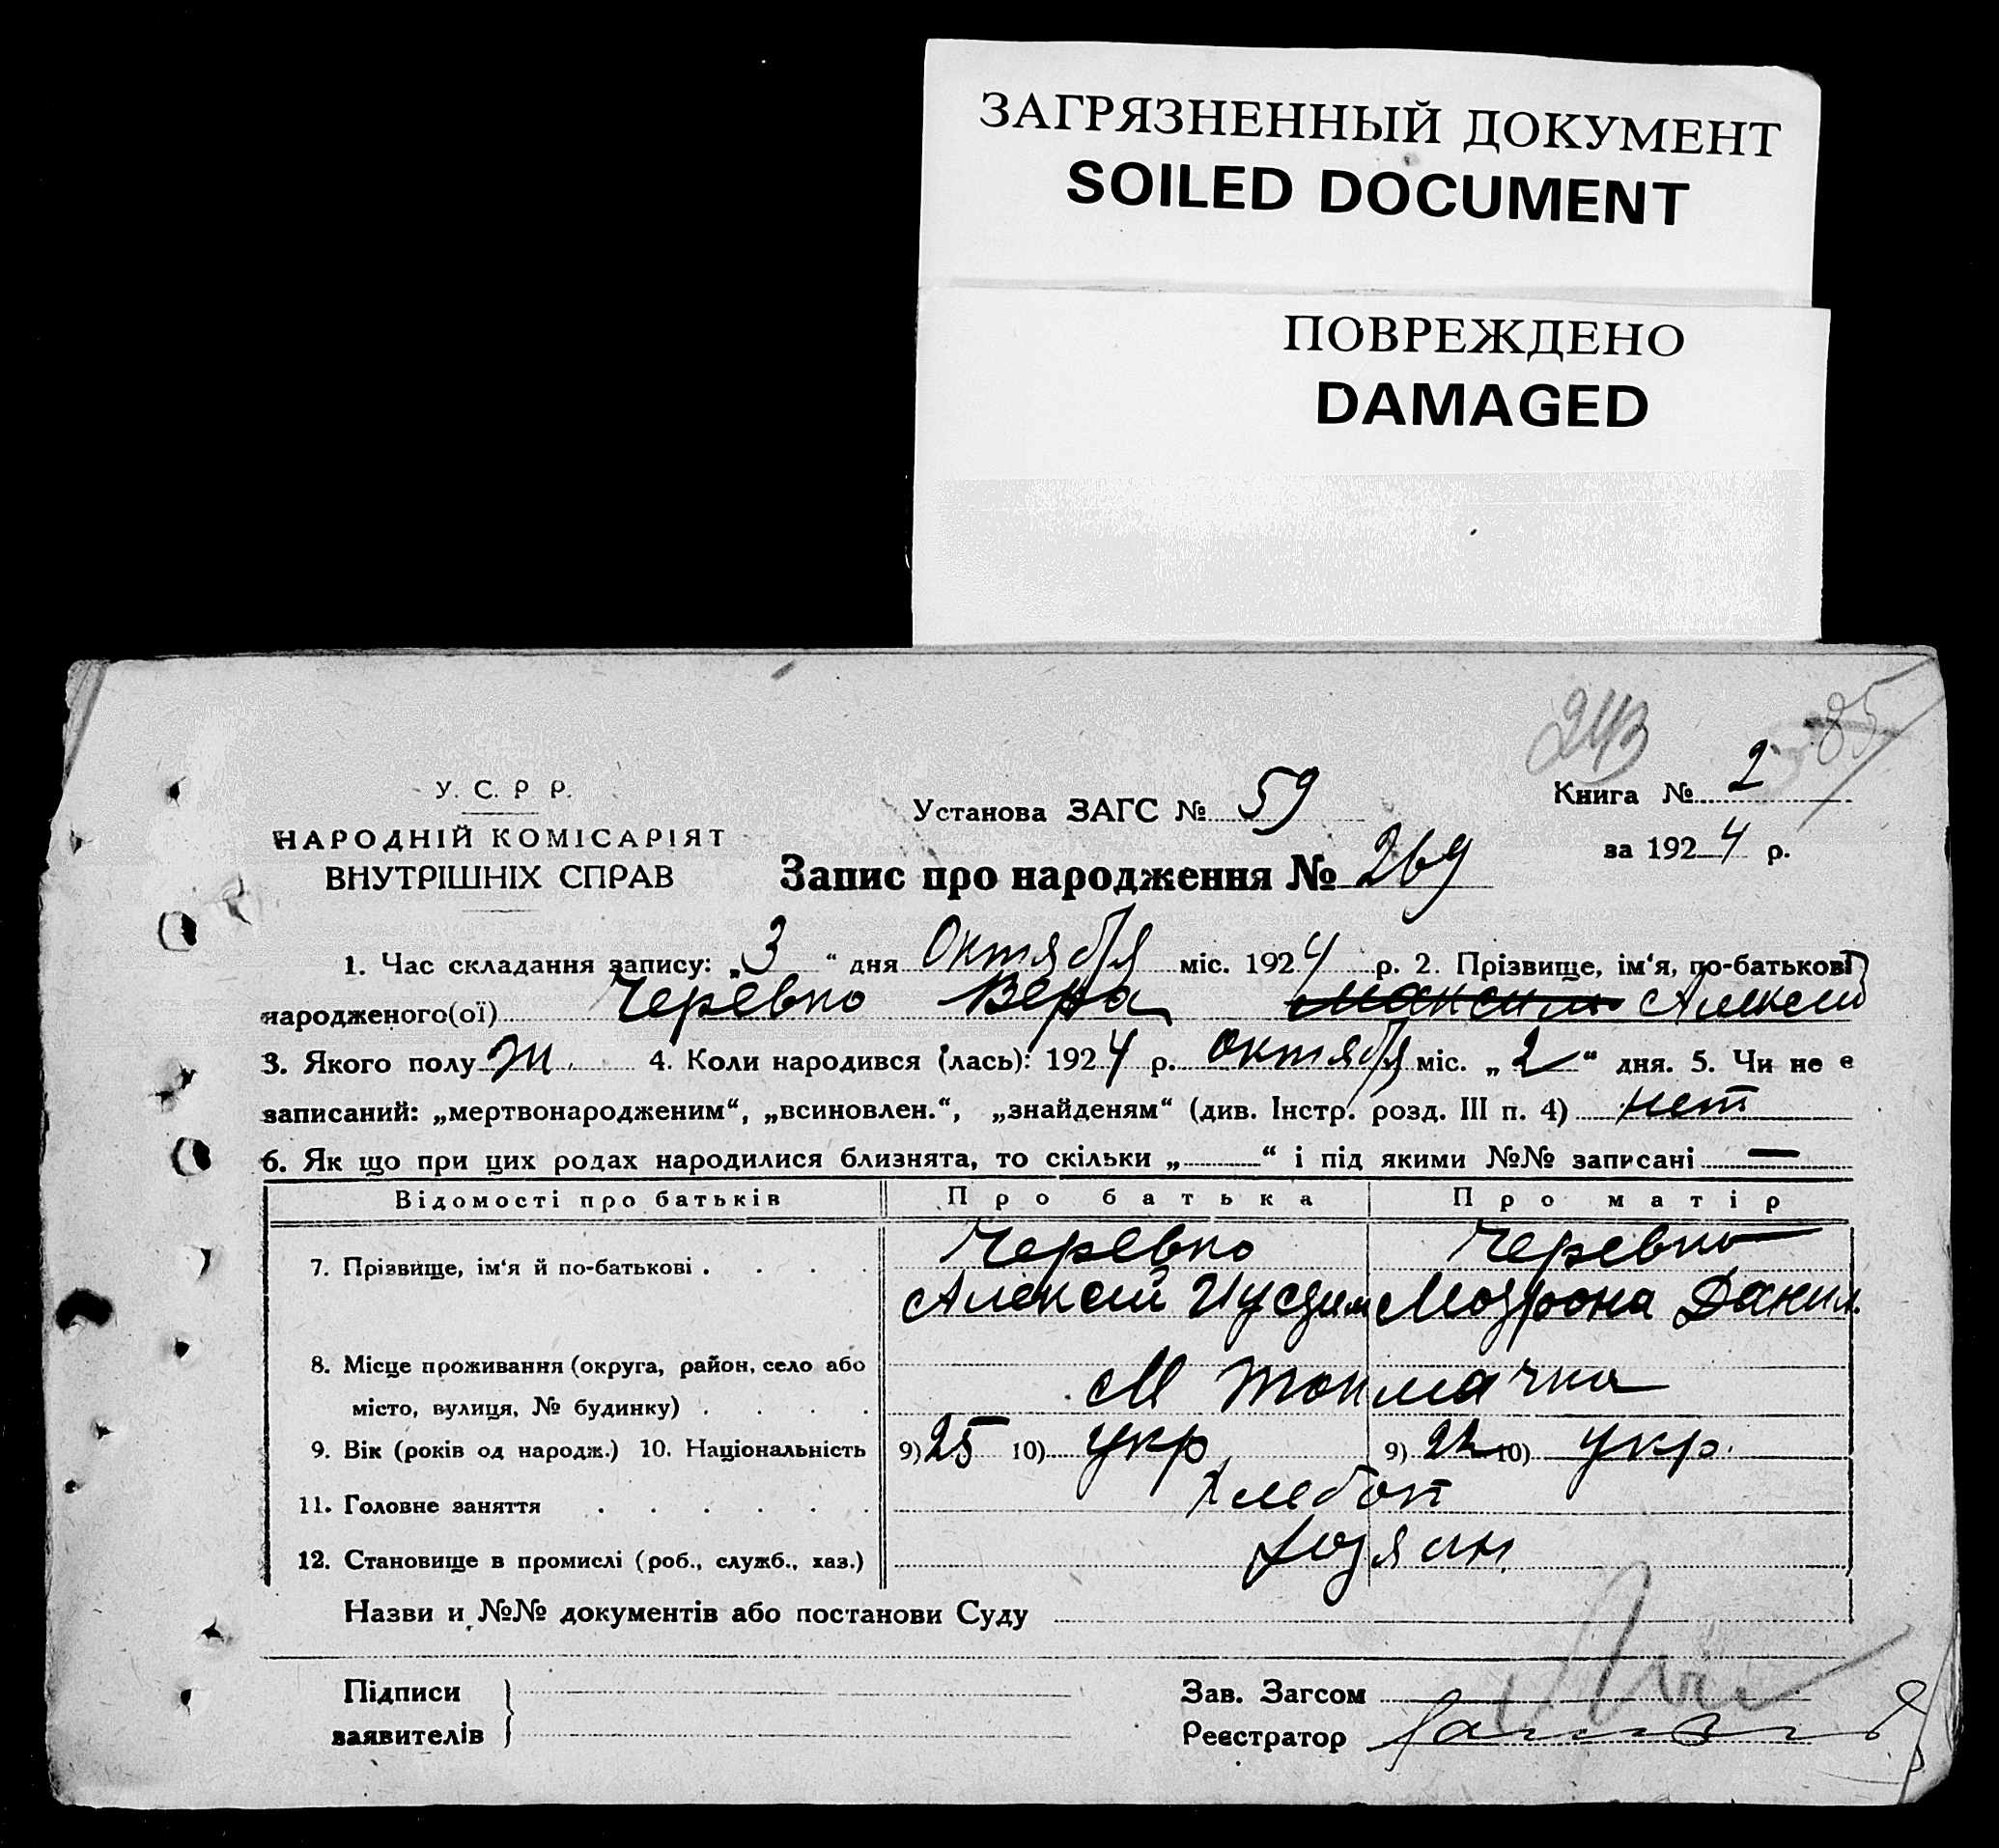 ЗАГРЯЗНЕННЫЙ ДОКУМЕНТ
SOILED DOCUMENT
ПОВРЕЖДЕНО
DAMAGED
243 85
У. С. Р. Р.
НАРОДНІЙ КОМІСАРІЯТ
ВНУТРІШНІХ СПРАВ
Установа ЗАГС № 59
Книга № 2
за 1924 р.
Запис про народження № 269
1. Час складання запису: „3“ дня Октября міс. 1924 р. 2. Прізвище, ім‘я, по-батькові
народженого(ої) Черевко Вера Максим Алексей
3. Якого полу ж. 4. Коли народився (лась): 1924 р. октября міс. „2“ дня. 5. Чи не є
записаний: „мертвонародженим“, „всиновлен.“, „знайденям“ (див. Інстр. розд. III п. 4) нет
6. Як що при цих родах народилися близнята, то скільки „ “ і під якими №№ записані —
Відомості про батьків Про батька Про матір
7. Прізвище, ім‘я й по-батькові . . . . Черевко Черевко
Алексей Данил.
8. Місце проживання (округа, район, село або
місто, вулиця, № будинку) . . . . М Токмачка
9. Вік (років од народж.) 10. Національність 9) 25 10) укр 9) 22 10) укр.
11. Головне заняття . . . . . . Хлебоп
12. Становище в промислі (роб., служб., хаз.) хозяин
Назви и №№ документів або постанови Суду
Підписи
заявителів
Зав. Загсом
Реєстратор